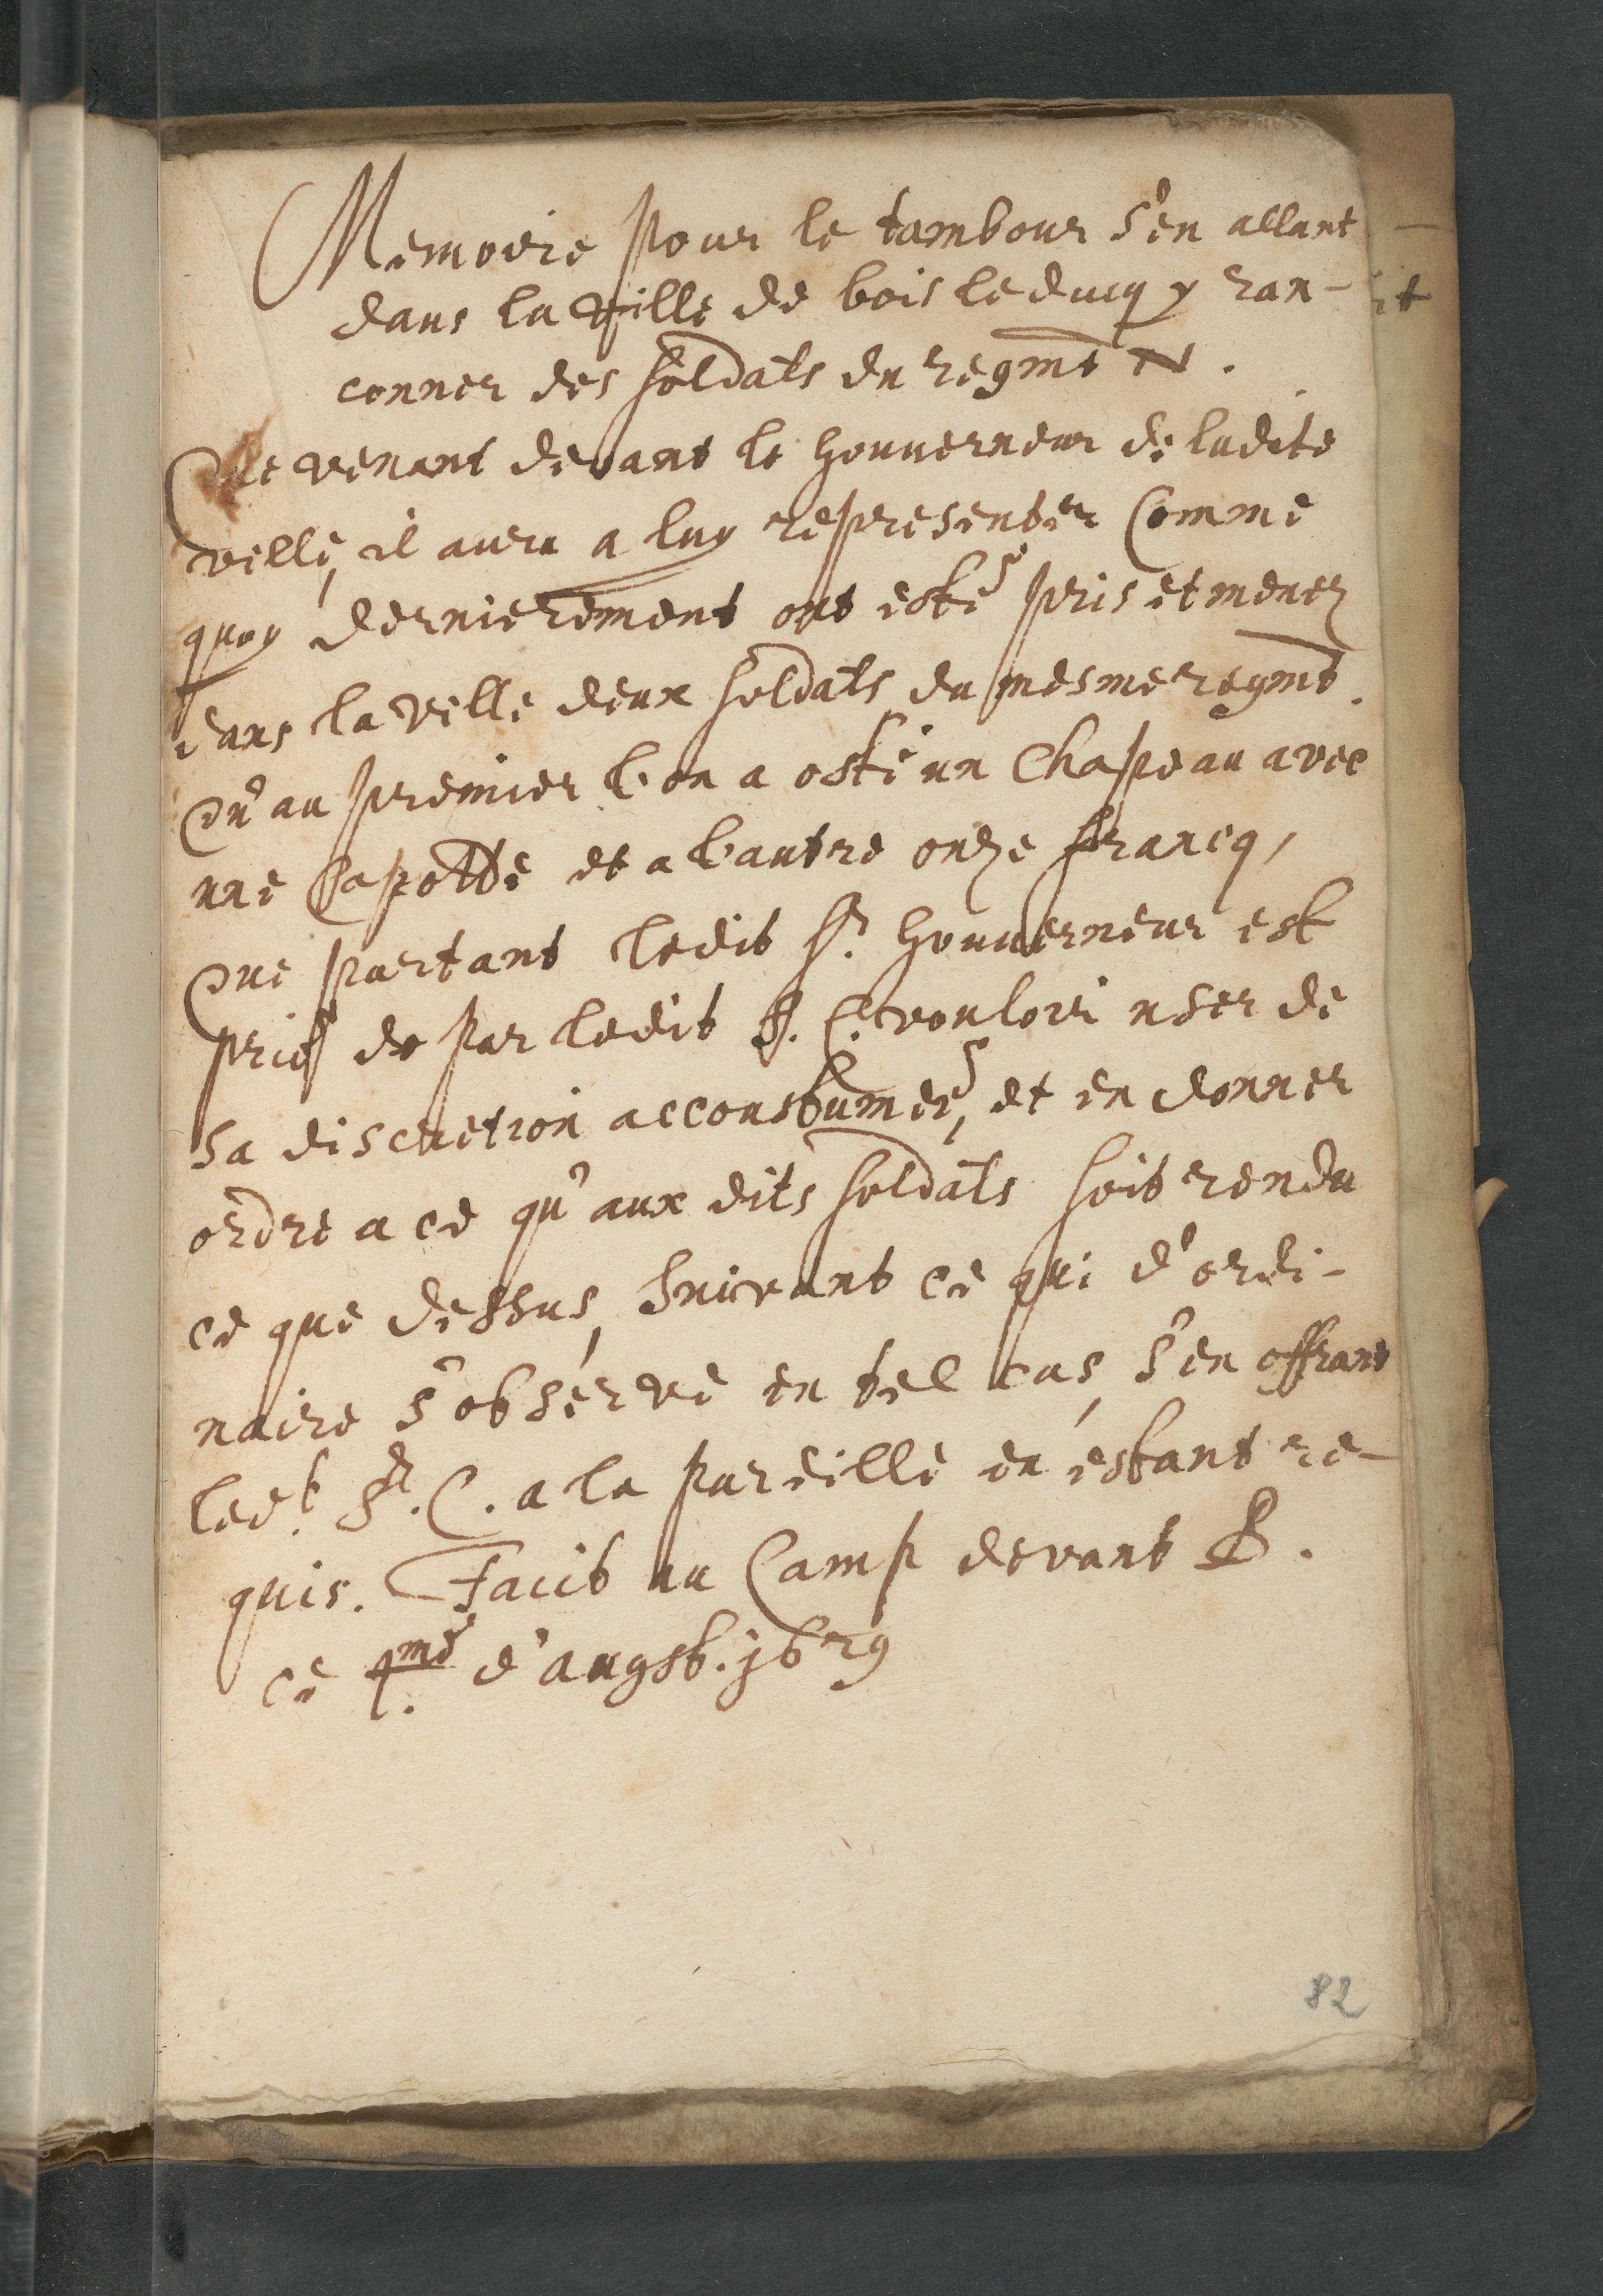 Memoire pour le tambour s'en allant
dans la ville de bois leducq y ran-
conner des soldats du regmt N.
Que venant devant le Gouverneur de ladite
ville, il aura a luy representer Comme
quoy dernierement ont esté pris et menez
dans la ville deux soldats du mesme regmt.
Qu'au premier l'on a osté un Chapeau avec
une Capotte et a l'autre onze francq,
Que partant ledit Sr. Gouverneur est
prié de par ledit S. C. vouloir user de
sa discretion accoustumée, et en donner
ordre a ce qu'aux dits soldats soit rendu
ce que dessus, suivant ce qui d'ordi-
naire s'observe en tel cas, s'en offrant
ledt. Sr. C. a la pareille en estant re-
quis. Faict au Camp devant B.
ce me d'augst. 1629
82